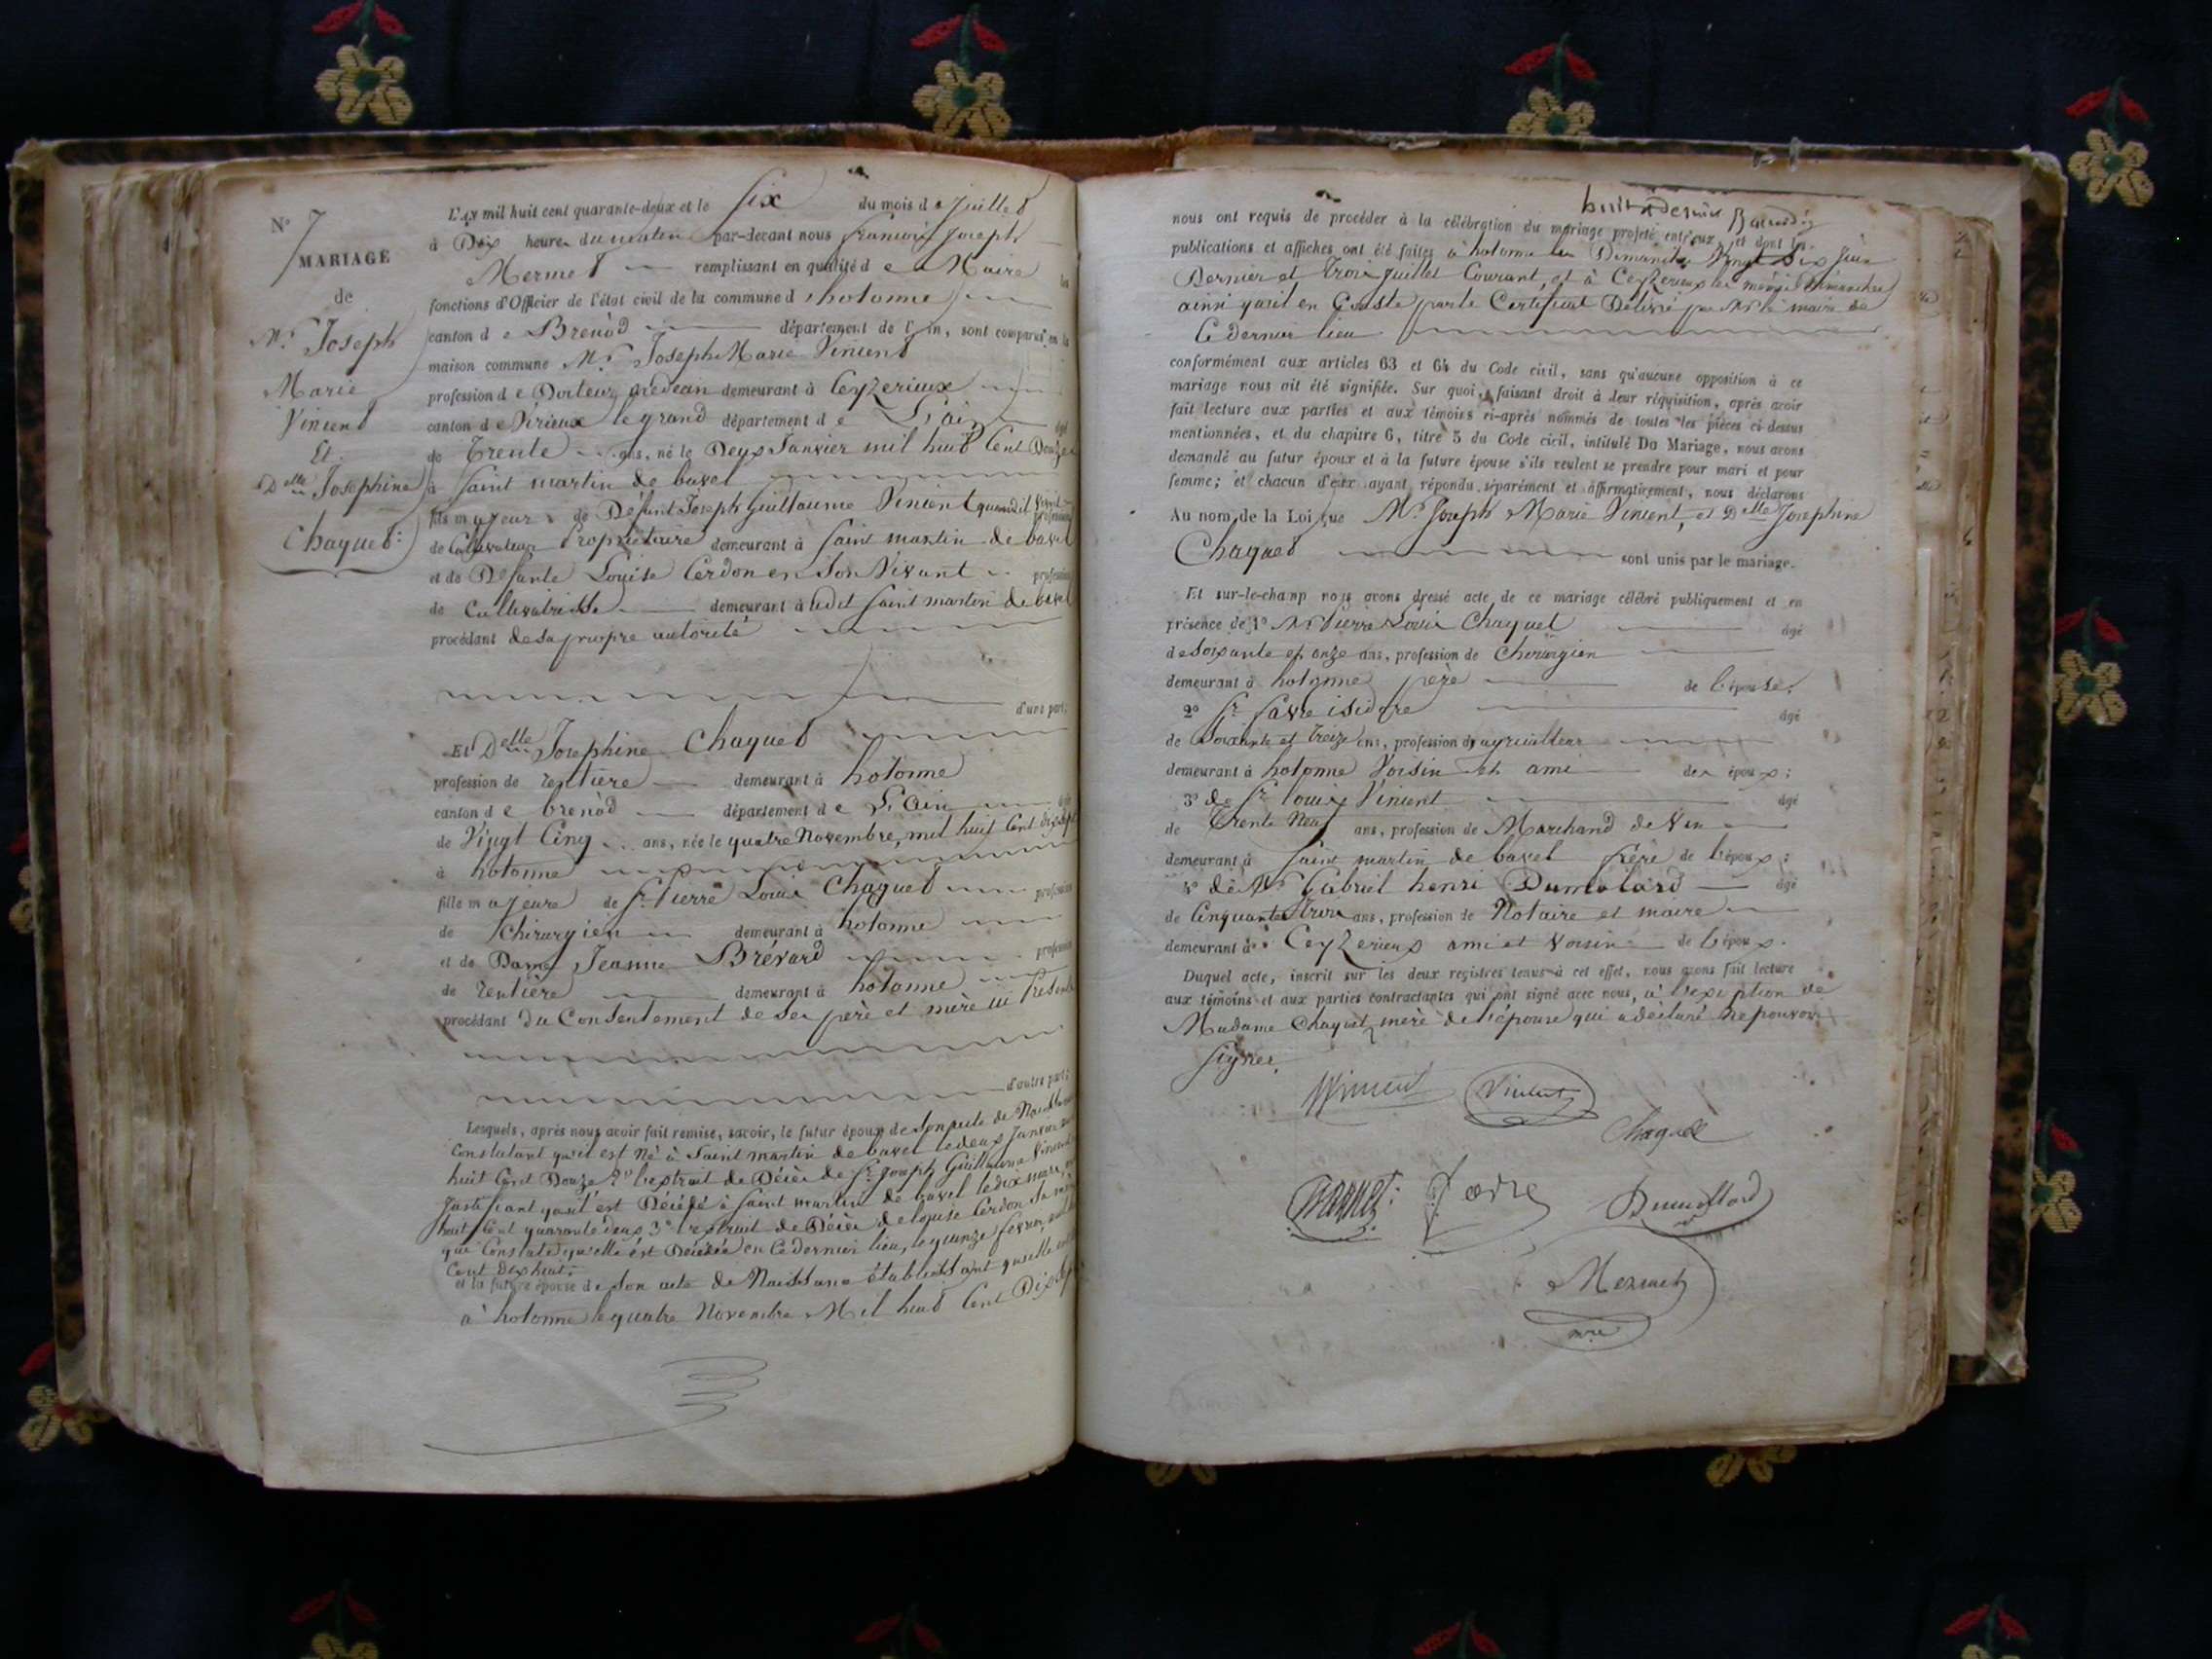 N° 7
MARIAGE
de
Mr. Joseph
Marie
Vincent
Et.
Delle Josephine
Chaquet:
L'an mil huit cent quarante-deux et le six du mois de Juillet
à Dix heures du matin par-devant nous françois Joseph
Mermet remplissant en qualité de Maire les
fonctions d'Officier de l'état civil de la commune d hotonne
canton de Brenod département de l'Ain, sont comparus en la
maison commune Mr. Joseph Marie Vincent
profession de Docteur médecin demeurant à Ceyzerieux
canton de Virieux le grand département de L'ain âgé
de Trente ans, né le Deux Janvier mil huit Cent Douze
à saint martin de bavel
fils majeur de Défunt Joseph Guillaume Vincent quand il vivait profession
de Cultivateur Propriétaire demeurant à saint martin de bavel
et de Défunte Louise Cerdon en Son Vivant profession
de Cultivatrisse demeurant à ledit saint martin de bavel
procédant de sa propre autorité
d'une part;
Et Delle Josephine Chaquet
profession de rentière demeurant à hotonne
canton de brenod département de L'ain âgée
de Vingt Cinq ans, née le quatre Novembre, mil huit Cent dix sept
à hotonne
fille majeure de Sr. Pierre Louis Chaquet profession
de Chirurgien demeurant à hotonne
et de Dame Jeanne Brévard profession
de rentière demeurant à hotonne
procédant du Consentement de Ses père et mère ici Présents
d'autre part;
Lesquels, après nous avoir fait remise, savoir, le futur époux de Son acte de Naissance
Constatant qu'il est Né à Saint martin de bavel le deux Janvier mil
huit Cent Douze 2° l'extrait de Décès de Sr. Joseph Guillaume Vincent
Justifiant qu'il est Décédé à Saint martin de bavel le dix mars,
huit Cent quarante deux 3° l'extrait de Décès de louise Cerdon Sa mère
qui Constate qu'elle est Décédée en Ce dernier lieu, le quinze fevrier, mil
Cent dix huit.
et la future épouse de Son acte de Naissance établissant qu'elle est
à hotonne le quatre Novembre Mil huit Cent Dix Sept
huit dernier
nous ont requis de procéder à la célébration du mariage projeté entr'eux, et dont les
publications et affiches ont été faites à hotonne les Dimanches Vingt Six Juin
Dernier et Trois Juillet Courant, et à Ceyzerieux les mêmes Dimanches
ainsi qu'il en Conste par le Certificat Délivré par Mr le maire de
Ce dernier lieu
conformément aux articles 63 et 64 du Code civil, sans qu'aucune opposition à ce
mariage nous ait été signifiée. Sur quoi, faisant droit à leur réquisition, après avoir
fait lecture aux parties et aux témoins ci-après nommés de toutes les pièces ci-dessus
mentionnées, et du chapitre 6, titre 5 du Code civil, intitulé Du Mariage, nous avons
demandé au futur époux et à la future épouse s'ils veulent se prendre pour mari et pour
femme; et chacun d'eux ayant répondu séparément et affirmativement, nous déclarons
Au nom de la Loi que Mr Joseph Marie Vincent, et Delle Josephine
Chaquet sont unis par le mariage.
Et sur-le-champ nous avons dressé acte de ce mariage célébré publiquement et en
présence de 1° Mr Pierre Louis Chaquet âgé
de Soixante et onze ans, profession de Chirurgien
demeurant à hotonne père de l'épouse;
2° Sr favre isidore âgé
de Soixante et treize ans, profession d'agriculteur
demeurant à hotonne Voisin et ami des époux;
3° de Sr louis Vincent âgé
de Trente Neuf ans, profession de Marchand de Vin
demeurant à Saint martin de bavel frère de l'époux;
4° de Mr Gabriel henri Dumolard âgé
de Cinquante Trois ans, profession de Notaire et maire
demeurant à Ceyzerieux ami et Voisin de l'époux.
Duquel acte, inscrit sur les deux registres tenus à cet effet, nous avons fait lecture
aux témoins et aux parties contractantes qui ont signé avec nous, à l'exception de
Madame Chaquet mère de l'épouse qui a déclaré ne pouvoir
signer.
Vincent Vincent
Chaquet
Chaquet: favre Dumollard
Mermet
mre